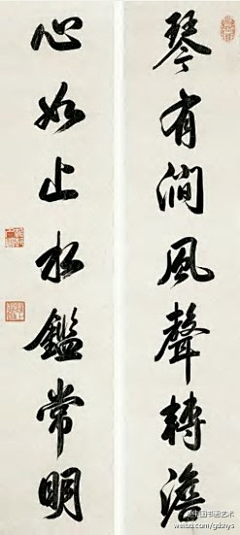 琴有澗風聲轉澹
心如止水鑑常明
weibo.com/gdshys